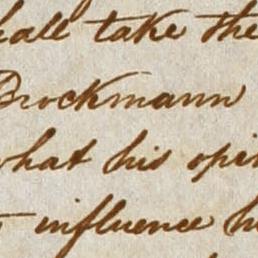 shall take the
Brockmann
what his opin
influence h